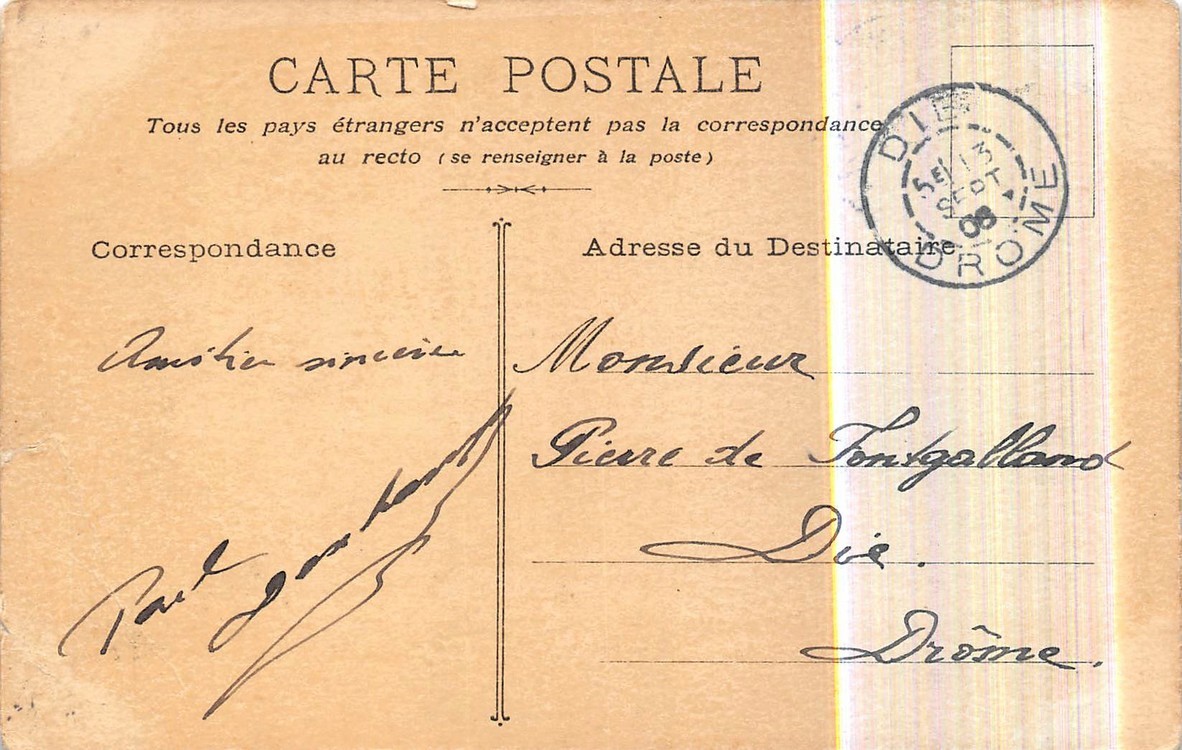 CARTE POSTALE
Tous les pays étrangers n'acceptent pas la correspondance
au recto (se renseigner à la poste)
DIE
13
SEPT
08
DROME
Correspondance
Adresse du Destinataire
Amitié sincère
Paul
Monsieur
Pierre de Fontgalland
Die.
Drôme.